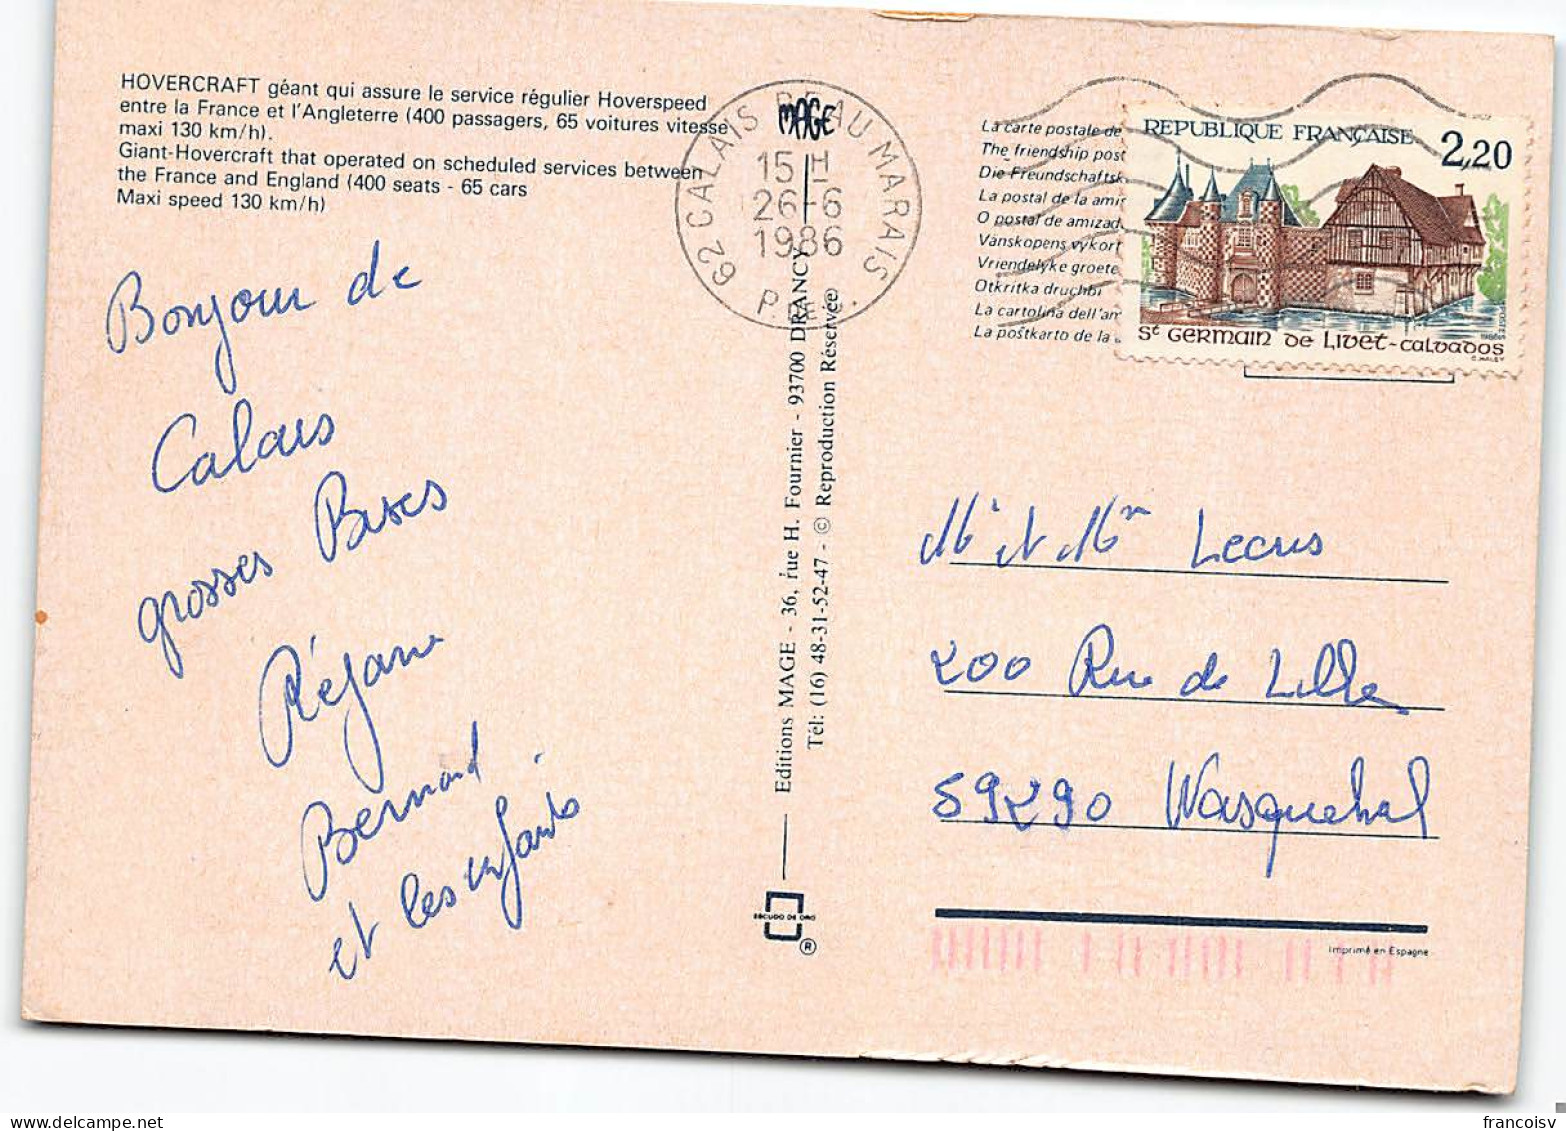 HOVERCRAFT géant qui assure le service régulier Hoverspeed
entre la France et l'Angleterre (400 passagers, 65 voitures vitesse
maxi 130 km/h).
Giant-Hovercraft that operated on scheduled services between
the France and England (400 seats - 65 cars
Maxi speed 130 km/h)
Bonjour de
Calais
grosses Bises
Réjane
Bernard
et les enfants
MAGE
62 CALAIS BEAU MARAIS
15 H
26-6
1986
P. DE C.
Editions MAGE - 36, rue H. Fournier - 93700 DRANCY
Tél: (16) 48-31-52-47 - © Reproduction Réservée
ESCUDO DE ORO
®
La carte postale de
The friendship post
Die Freundschaftsk
La postal de la amis
O postal de amizad
Vänskopens vykort
Vriendelyke groete
Otkritka druchbi
La cartolina dell'am
La poŝtkarto de la
REPUBLIQUE FRANÇAISE 2,20
St GERMAIN DE LIVET-CALVADOS
POSTES 1986
C. HALEY
Mr et Mm Lecus
200 Rue de Lille
59290 Wasquehal
Imprimé en Espagne
francoisv